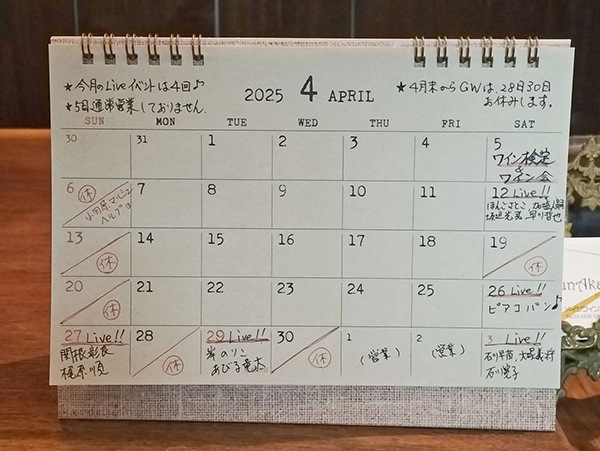 ★今月のLiveイベントは4回♪
★5日通常営業しておりません
2025 4 APRIL
★4月末からGWは、28日30日
お休みします。
SUN MON TUE WED THU FRI SAT
30 31 1 2 3 4 5
ワイン検定
&
ワイン会
6 休 7 8 9 10 11 12 Live!!
小田原マルシェ
ヘルプ
ほんごさとこ
早川哲也
13 休 14 15 16 17 18 19 休
20 休 21 22 23 24 25 26 Live!!
ピアコパン♪
27 Live!! 28 休 29 Live!! 30 休 1 (営業) 2 (営業) 3 Live!!
関根彰良
梶原順
岸のりこ
あびる竜太
石川早苗、大塚義将
石川寛子